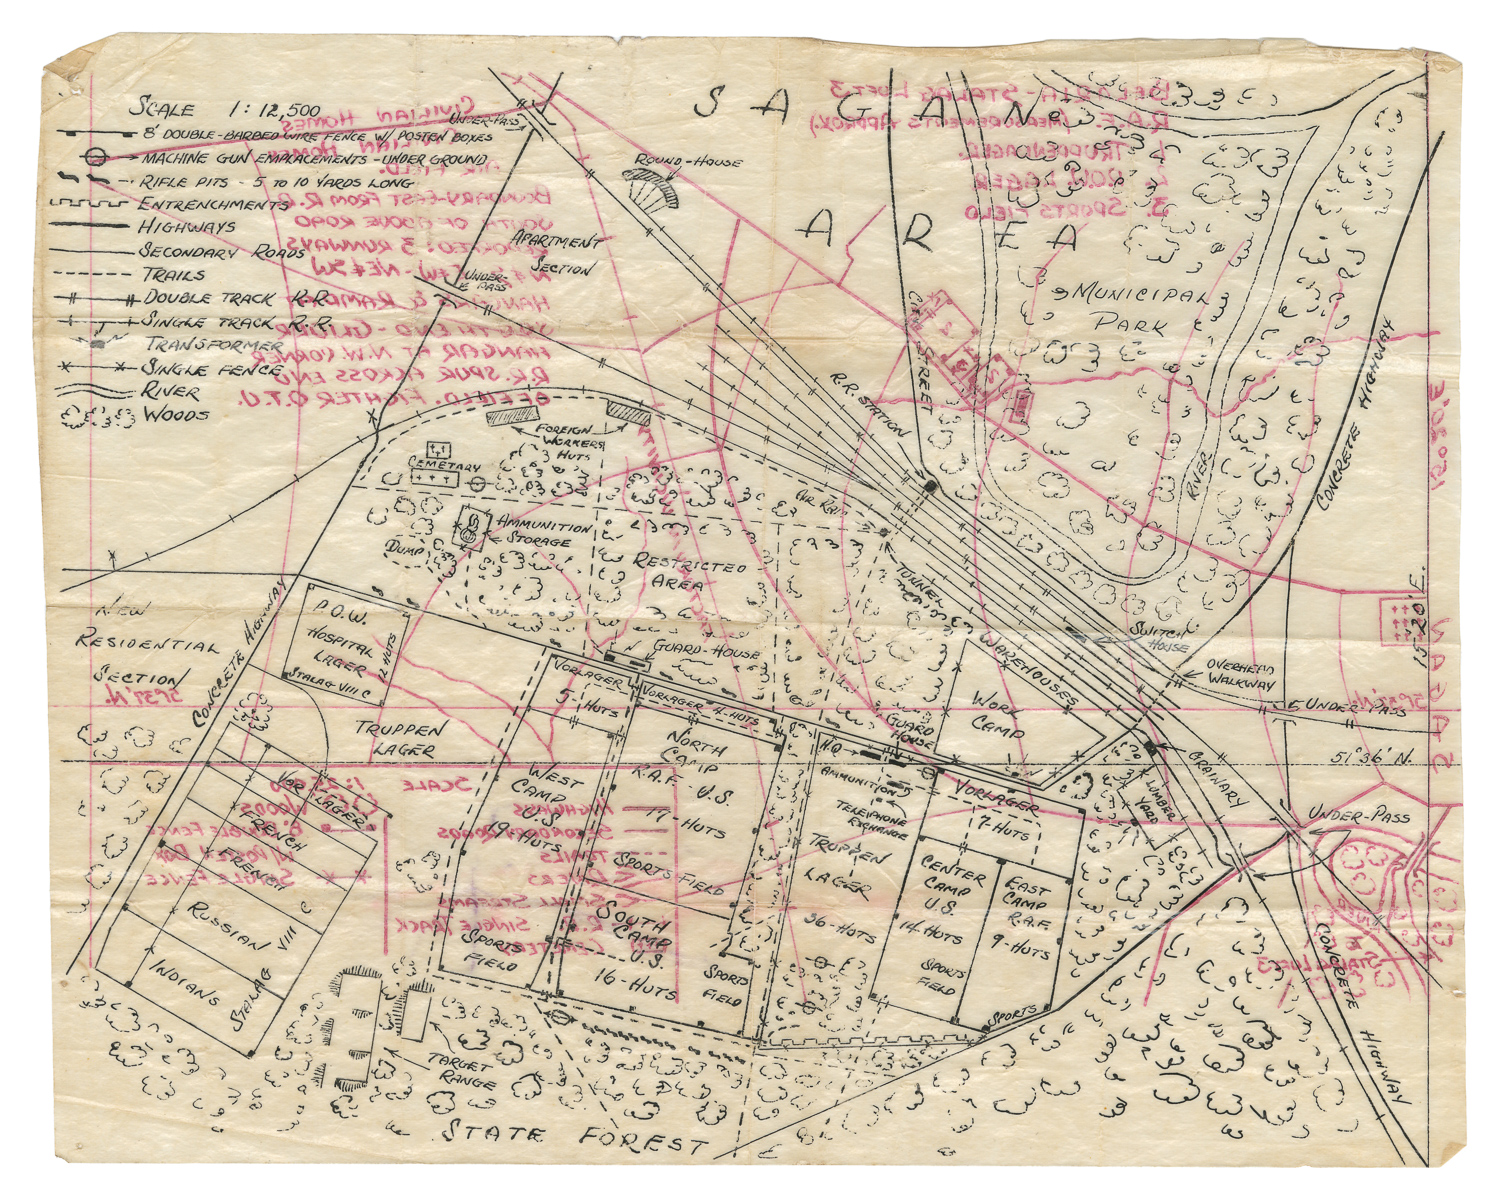 SAGAN
AREA
SCALE 1:12,500
8' DOUBLE-BARBED WIRE FENCE W/ POSTEN BOXES
MACHINE GUN EMPLACEMENTS - UNDER GROUND
RIFLE PITS - 5 TO 10 YARDS LONG
ENTRENCHMENTS
HIGHWAYS
SECONDARY ROADS
TRAILS
DOUBLE TRACK R.R.
SINGLE TRACK R.R.
TRANSFORMER
SINGLE FENCE
RIVER
WOODS
UNDER-PASS
ROUND-HOUSE
APARTMENT
SECTION
UNDER-
PASS
MUNICIPAL
PARK
STREET
R.R. STATION
RIVER
CONCRETE HIGHWAY
FOREIGN
WORKERS
HUTS
CEMETARY
AMMUNITION
STORAGE
DUMP
RESTRICTED
AREA
TUNNEL
WAREHOUSES
SWITCH
HOUSE
OVERHEAD
WALKWAY
UNDER-PASS
15°20' E.
51°36' N.
NEW
RESIDENTIAL
SECTION
CONCRETE HIGHWAY
P.O.W.
HOSPITAL
LAGER
STALAG VIII C
12 HUTS
TRUPPEN
LAGER
GUARD-HOUSE
VORLAGER
5-HUTS
VORLAGER 4-HUTS
WORK
CAMP
GUARD
HOUSE
H.Q.
AMMUNITION
TELEPHONE
EXCHANGE
VORLAGER
7-HUTS
GRAINARY
LUMBER
YARD
UNDER-PASS
WEST
CAMP
U.S.
HUTS
SPORTS
FIELD
NORTH
CAMP
R.A.F. - U.S.
17-HUTS
SPORTS FIELD
SOUTH
CAMP
U.S.
16-HUTS
SPORTS
FIELD
TRUPPEN
LAGER
36-HUTS
CENTER
CAMP
U.S.
14-HUTS
SPORTS
FIELD
EAST
CAMP
R.A.F.
9-HUTS
SPORTS
VORLAGER
FRENCH
FRENCH
RUSSIAN
INDIANS
STALAG VIII C
TARGET
RANGE
STATE FOREST
CONCRETE HIGHWAY
BELARIA - STALAG LUFT 3
R.A.F. (MEASUREMENTS APPROX.)
1. TRUPPENLAGER
2. P.O.W. LAGER
3. SPORTS FIELD
CIVILIAN HOMES
AIR FIELD.
BOUNDARY-EAST FROM R.R.
SOUTH OF ABOVE ROAD
3 RUNWAYS
HANGAR AT N.W. CORNER
R.R. SPUR ACROSS END
OF FIELD. FIGHTER O.T.U.
51°37' N.
SCALE
HIGHWAYS
SECONDARY ROADS
TRAILS
RIVERS
SMALL STREAMS
R.R. SINGLE TRACK
CEMETERY
WOODS
8' DOUBLE FENCE
W/ POSTEN BOX
SINGLE FENCE
STALAG LUFT 3